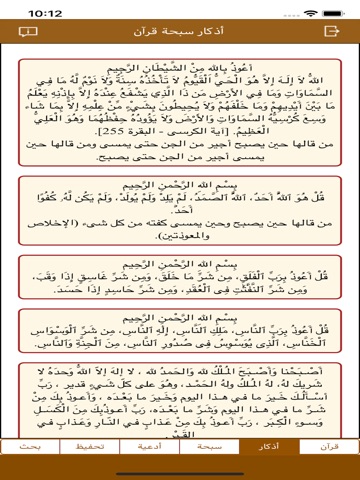 10:12
أذكار سبحة قرآن
أَعُوذُ بِاللهِ مِنْ الشَّيْطَانِ الرَّجِيمِ
اللّهُ لاَ إِلَـهَ إِلاَّ هُوَ الْحَيُّ الْقَيُّومُ لاَ تَأْخُذُهُ سِنَةٌ وَلاَ نَوْمٌ لَّهُ مَا فِي
السَّمَاوَاتِ وَمَا فِي الأَرْضِ مَن ذَا الَّذِي يَشْفَعُ عِنْدَهُ إِلاَّ بِإِذْنِهِ يَعْلَمُ
مَا بَيْنَ أَيْدِيهِمْ وَمَا خَلْفَهُمْ وَلاَ يُحِيطُونَ بِشَيْءٍ مِّنْ عِلْمِهِ إِلاَّ بِمَا شَاء
وَسِعَ كُرْسِيُّهُ السَّمَاوَاتِ وَالأَرْضَ وَلاَ يَؤُودُهُ حِفْظُهُمَا وَهُوَ الْعَلِيُّ
الْعَظِيمُ. [آية الكرسى - البقرة 255].
من قالها حين يصبح أجير من الجن حتى يمسى ومن قالها حين
يمسى أجير من الجن حتى يصبح.
بِسْمِ اللهِ الرَّحْمنِ الرَّحِيمِ
قُلْ هُوَ ٱللَّهُ أَحَدٌ، ٱللَّهُ ٱلصَّمَدُ، لَمْ يَلِدْ وَلَمْ يُولَدْ، وَلَمْ يَكُن لَّهُ كُفُوًا
أَحَدٌ.
من قالها حين يصبح وحين يمسى كفته من كل شىء (الإخلاص
والمعوذتين).
بِسْمِ اللهِ الرَّحْمنِ الرَّحِيمِ
قُلْ أَعُوذُ بِرَبِّ ٱلْفَلَقِ، مِن شَرِّ مَا خَلَقَ، وَمِن شَرِّ غَاسِقٍ إِذَا وَقَبَ،
وَمِن شَرِّ ٱلنَّفَّٰثَٰتِ فِى ٱلْعُقَدِ، وَمِن شَرِّ حَاسِدٍ إِذَا حَسَدَ.
بِسْمِ اللهِ الرَّحْمنِ الرَّحِيمِ
قُلْ أَعُوذُ بِرَبِّ ٱلنَّاسِ، مَلِكِ ٱلنَّاسِ، إِلَٰهِ ٱلنَّاسِ، مِن شَرِّ ٱلْوَسْوَاسِ
ٱلْخَنَّاسِ، ٱلَّذِى يُوَسْوِسُ فِى صُدُورِ ٱلنَّاسِ، مِنَ ٱلْجِنَّةِ وَٱلنَّاسِ.
أَصْـبَحْنا وَأَصْـبَحَ المُـلْكُ لله وَالحَمدُ لله ، لا إلهَ إلاّ اللّهُ وَحدَهُ لا
شَريكَ لهُ، لهُ المُـلكُ ولهُ الحَمْـد، وهُوَ على كلّ شَيءٍ قدير ، رَبِّ
أسْـأَلُـكَ خَـيرَ ما في هـذا اليوم وَخَـيرَ ما بَعْـدَه ، وَأَعـوذُ بِكَ مِنْ
شَـرِّ ما في هـذا اليوم وَشَرِّ ما بَعْـدَه، رَبِّ أَعـوذُبِكَ مِنَ الْكَسَـلِ
وَسـوءِ الْكِـبَر ، رَبِّ أَعـوذُ بِـكَ مِنْ عَـذابٍ في النّـارِ وَعَـذابٍ في
القَـبْر.
قرآن
أذكار
سبحة
أدعية
تحفيظ
بحث